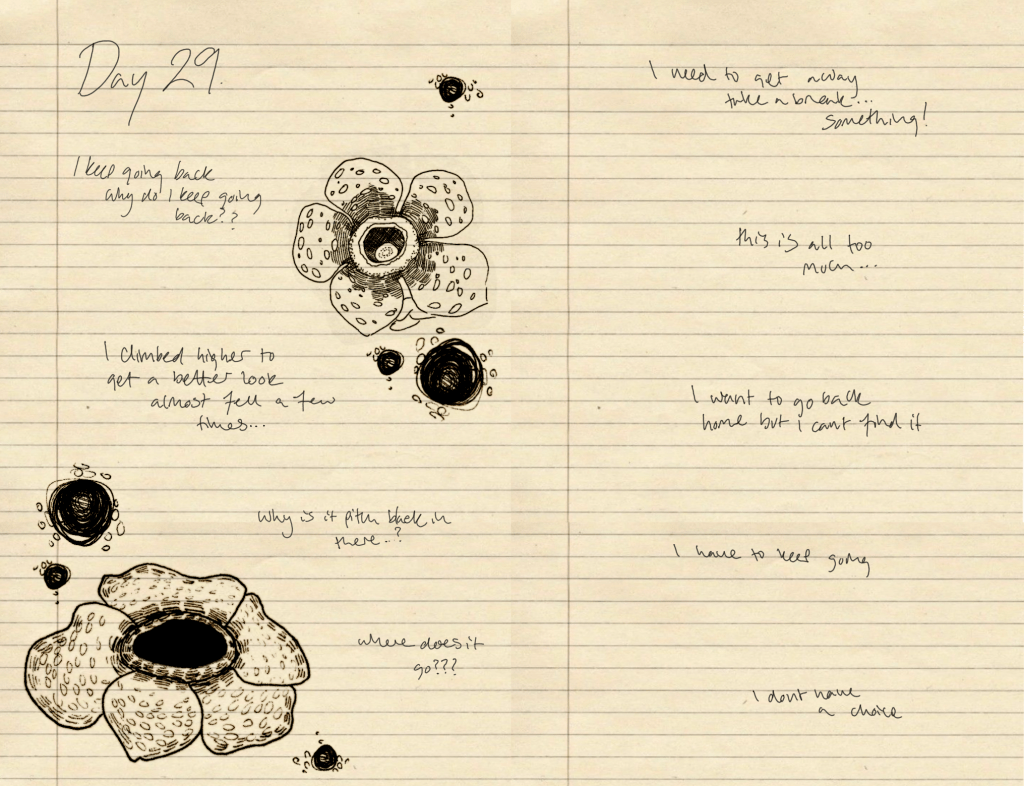 Day 29.
I keep going back
why do I keep going
back??
I climbed higher to
get a better look
almost fell a few
times...
why is it pitch black in
there..?
where does it
go???
I need to get away
take a break...
something!
this is all too
much...
I want to go back
home but i cant find it
I have to keep going
I dont have
a choice